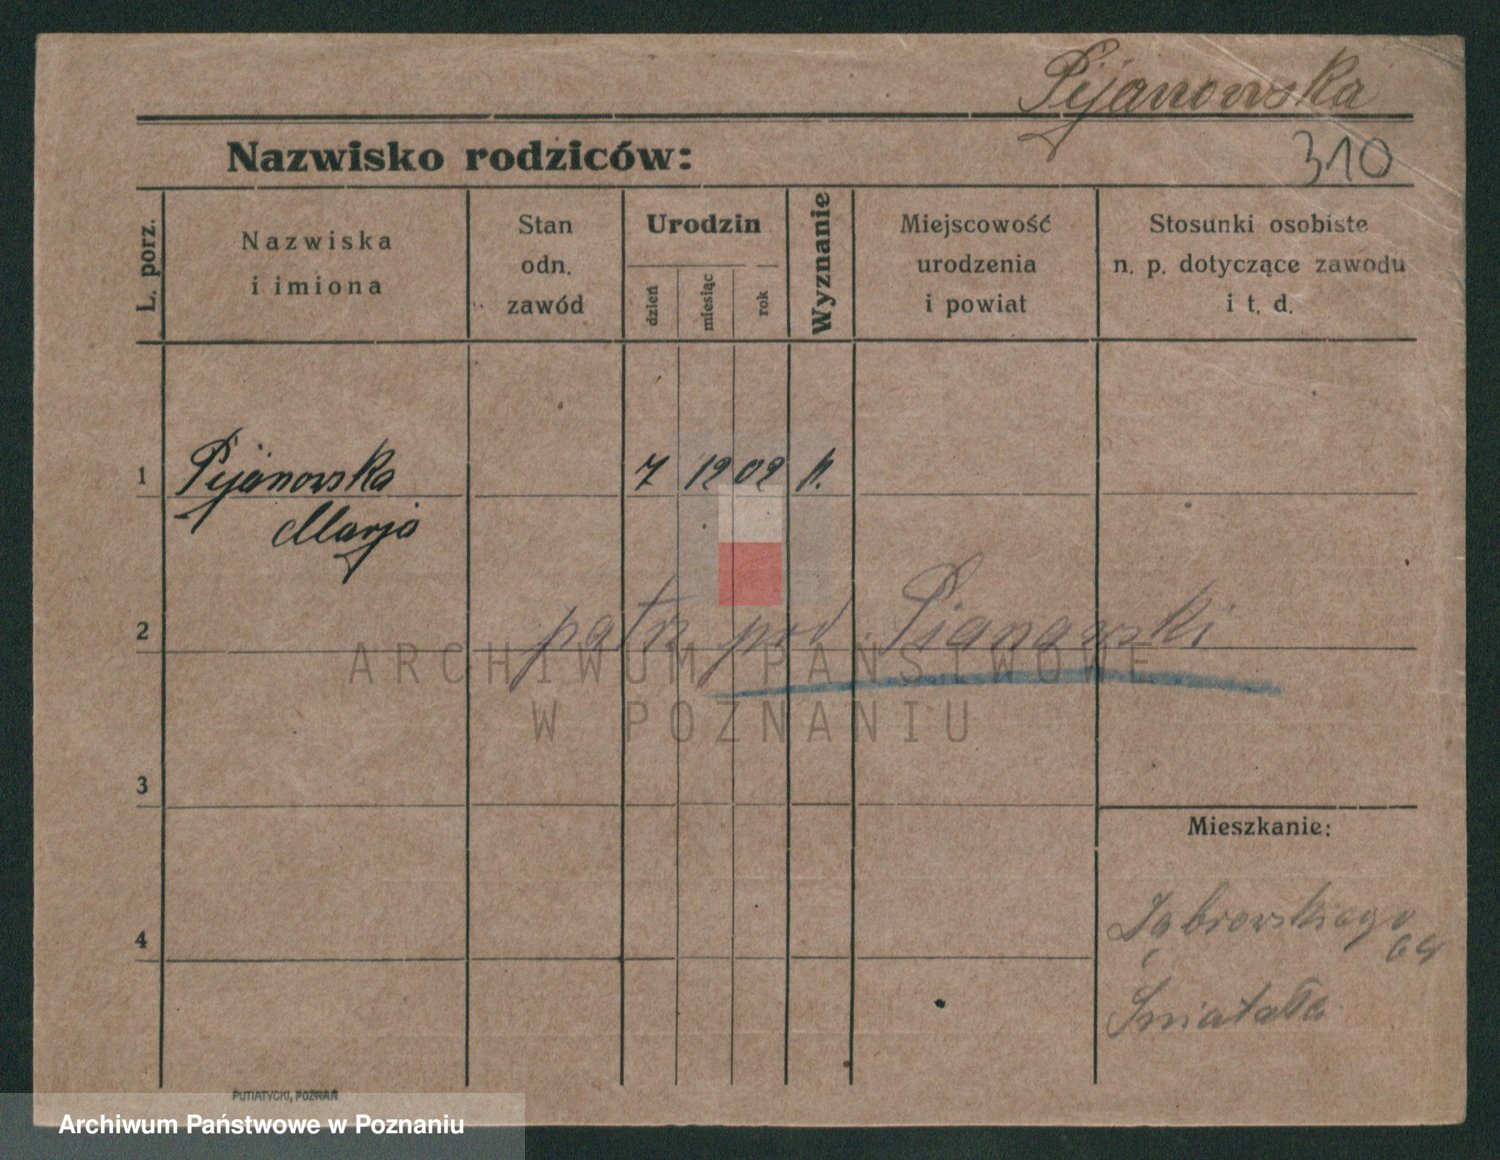 Pijanowska
Nazwisko rodziców:
310
L. porz.
Nazwiska
i imiona
Stan
odn.
zawód
Urodzin
dzień
miesiąc
rok
Wyznanie
Miejscowość
urodzenia
i powiat
Stosunki osobiste
n. p. dotyczące zawodu
i t. d.
1
Pijanowska
Marja
7 12 02 k.
2
patrz pod Pianowski
ARCHIWUM PAŃSTWOWE
W POZNANIU
3
Mieszkanie:
4
Dąbrowskiego
64
PUTIATYCKI, POZNAŃ
Archiwum Państwowe w Poznaniu